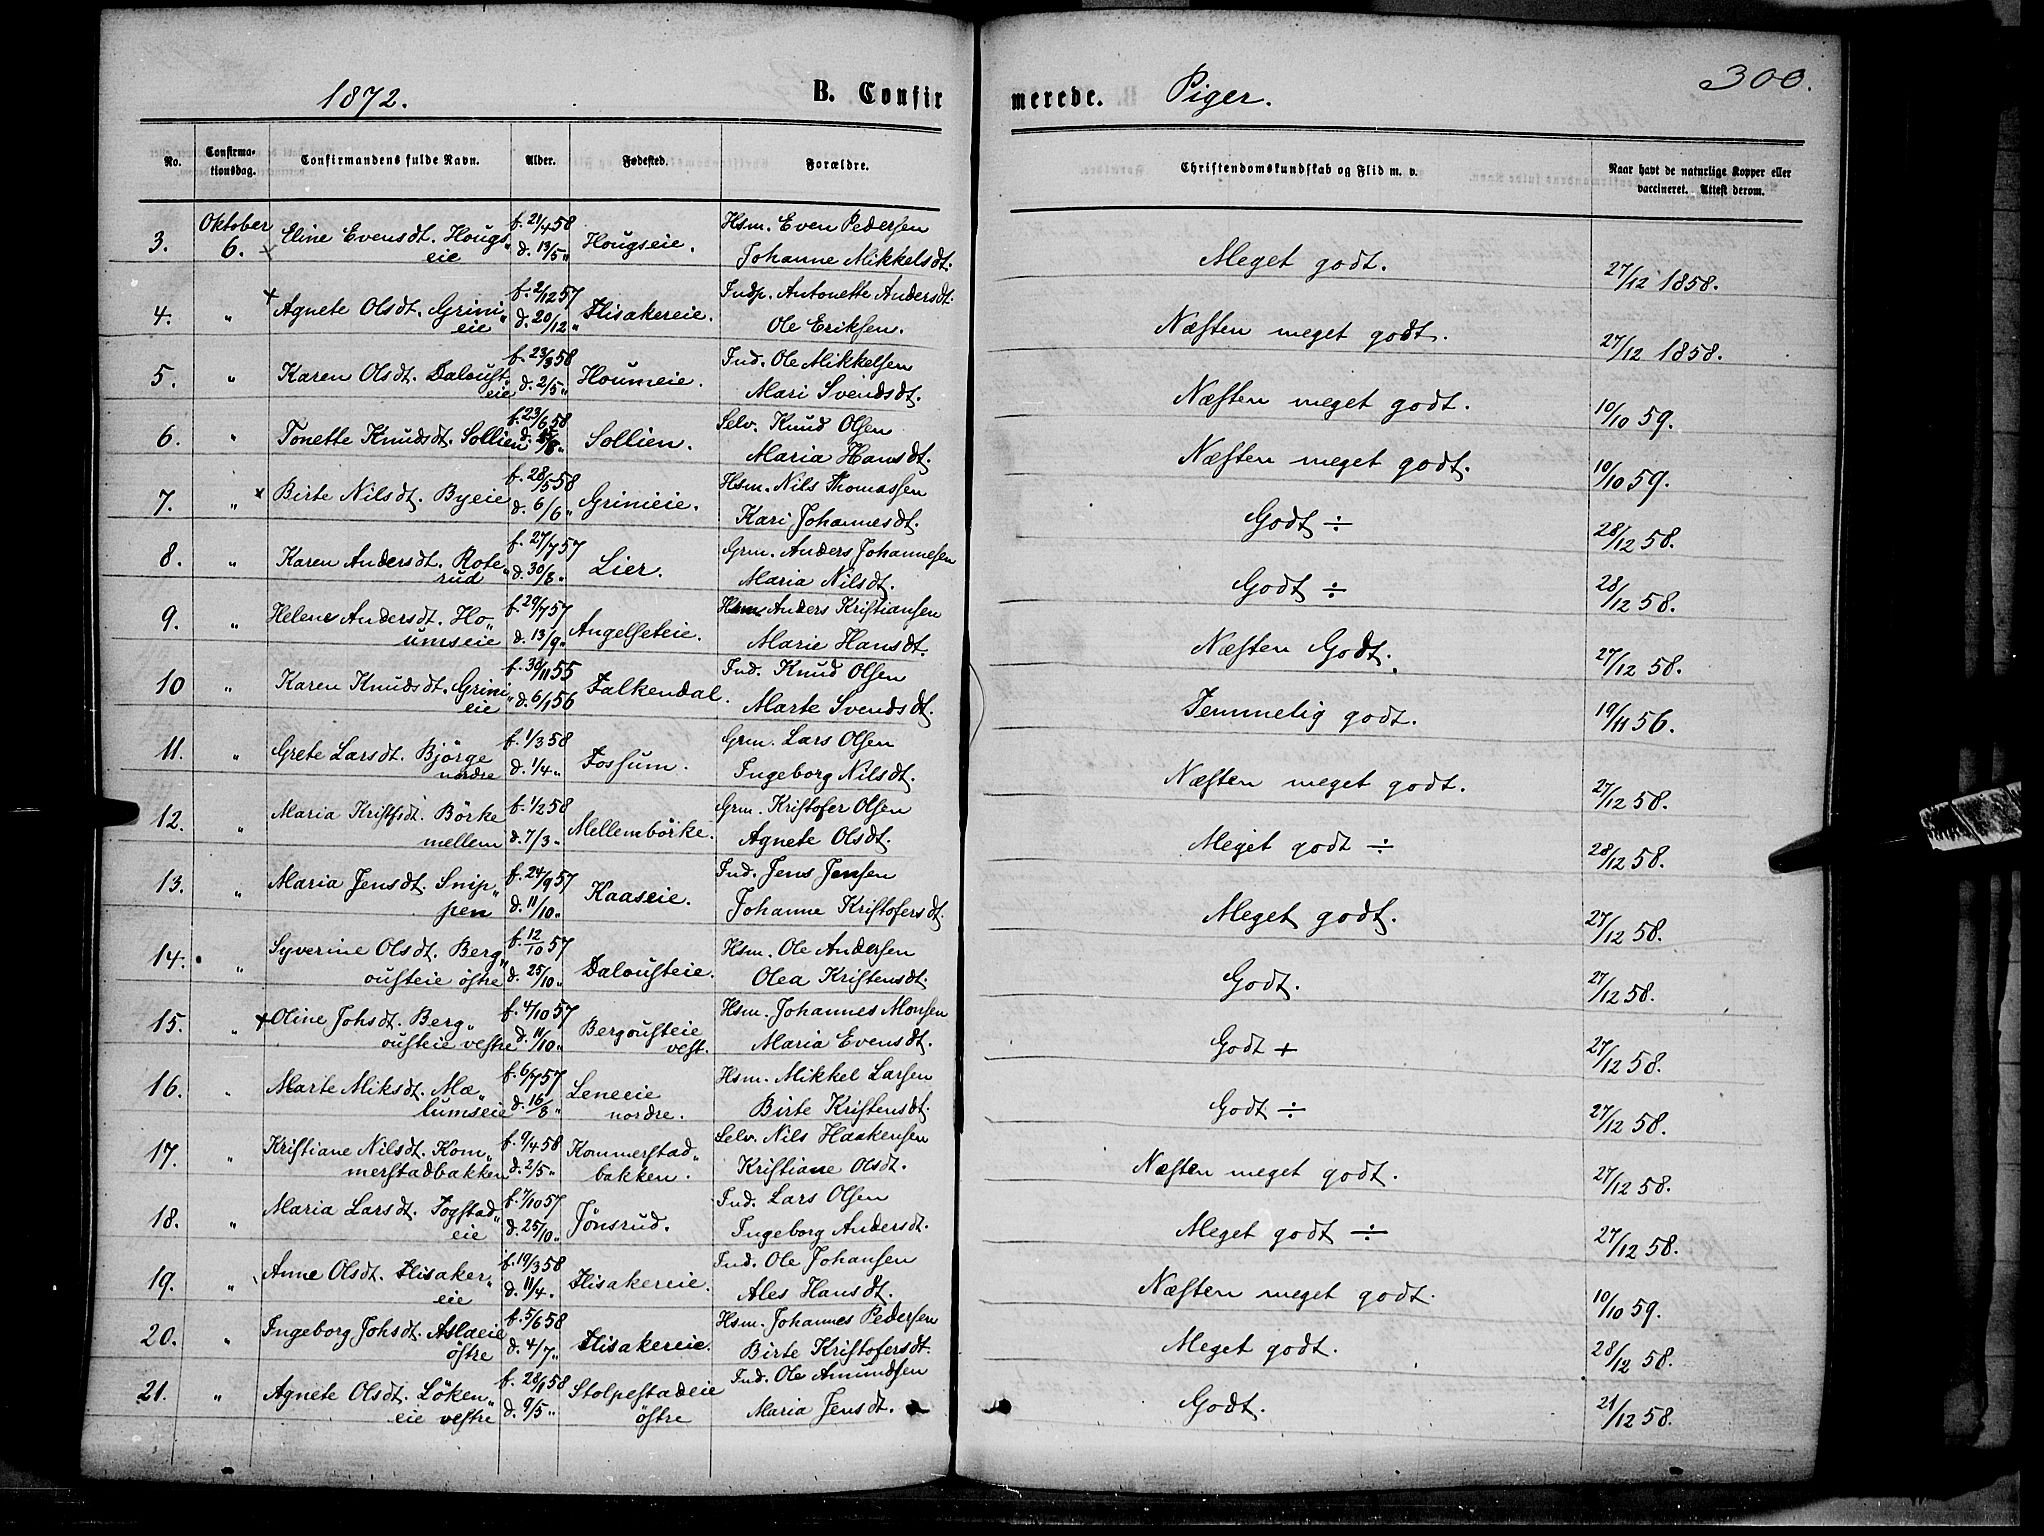 1872.
B. Confir
merede.
Piger.
300.
No.
Confirma-
tionsdag.
Confirmandens fulde Navn.
Alder.
Fødested.
Forældre.
Christendomskundskab og Flid m. v.
Naar havt de naturlige Kopper eller
vaccineret. Attest derom.
3. Oktober 6. Eline Evensdt. Hougs„ f. 21/4 58 Hougseie. Hsm. Even Pedersen
eie d. 13/5 „ Johanne Mikkelsdt.
Meget godt. 27/12 1858.
4. „ Agnete Olsdt. Grini„ f. 2/12 57 Ilisakereie. Indp. Antonette Andersdt.
eie d. 20/12 „ Ole Eriksen.
Næsten meget godt. 27/12 1858.
5. „ Karen Olsdt. Daloust„ f. 23/3 58 Houmeie. Ind. Ole Mikkelsen
eie d. 2/5 „ Mari Svendsdt.
Næsten meget godt. 10/10 59.
6. „ Tonette Knudsdt. Sollien f. 23/6 58 Sollien. Selv. Knud Olsen
Maria Hansdt.
Næsten meget godt. 10/10 59.
7. „ Birte Nilsdt. Byeie f. 28/5 58 Grinieie. Hsm. Nils Thomassen
d. 6/6 „ Kari Johannesdt.
Godt ÷ 28/12 58.
8. „ Karen Andersdt. Rote„ f. 27/7 57 Lier. Grm. Anders Johannesen
rud d. 30/8 „ Maria Nilsdt.
Godt ÷ 28/12 58.
9. „ Helene Andersdt. Ho„ f. 29/7 57 Angelseteie. Hsm Anders Kristiansen
umseie d. 13/9 „ Marie Hansdt.
Næsten Godt. 27/12 58.
10 „ Karen Knudsdt. Grini„ f. 30/11 55 Falkendal. Ind. Knud Olsen
eie d. 6/1 56 Marte Svendsdt.
Temmelig godt. 19/11 56.
11. „ Grete Larsdt. Bjørge f. 1/3 58 Fossum. Grm. Lars Olsen
nordre d. 1/4 „ Ingeborg Nilsdt.
Næsten meget godt. 27/12 58.
12. „ Maria Kristfsdt. Börke f. 1/2 58 Mellembörke. Grm. Kristofer Olsen
mellem d. 7/3 „ Agnete Olsdt.
Meget godt ÷ 28/12 58.
13. „ Maria Jensdt. Snip„ f. 24/9 57 Kaaseie. Ind. Jens Jensen
pen d. 11/10 „ Johanne Kristofersdt.
Meget godt. 27/12 58.
14. „ Syverine Olsdt. Berg„ f. 12/10 57 Dalousteie. Hsm. Ole Andersen
ousteie östre d. 25/10 „ Olea Kristensdt.
Godt. 27/12 58.
15. „ Oline Johsdt. Berg„ f. 4/10 57 Bergousteie Hsm. Johannes Monsen
ousteie vestre d. 11/10 „ vest. Maria Evensdt.
Godt + 27/12 58.
16. „ Marte Miksdt. Mæ„ f. 6/7 57 Leneeie Hsm. Mikkel Larsen
lumseie d. 16/8 „ nordre. Birte Kristensdt.
Godt ÷ 27/12 58.
17. „ Kristiane Nilsdt. Kom„ f. 9/4 58 Kommerstad„ Selv. Nils Haakensen
merstadbakken d. 2/5 „ bakken. Kristiane Olsdt.
Næsten meget godt. 27/12 58.
18. „ Maria Larsdt. Fogstad„ f. 7/10 57 Jönsrud. Ind. Lars Olsen
eie d. 25/10 „ Ingeborg Andersdt.
Meget godt ÷ 27/12 58.
19. „ Anne Olsdt. Ilisaker„ f. 19/3 58 Ilisakereie. Ind. Ole Johansen
eie d. 11/4 „ Ales Hansdt.
Næsten meget godt. 10/10 59.
20. „ Ingeborg Johsdt. Aslaeie f. 5/6 58 Ilisakereie. Hsm. Johannes Pedersen
östre d. 4/7 „ Birte Kristofersdt.
Meget godt. 28/12 58.
21. „ Agnete Olsdt. Löken„ f. 28/1 58 Stolpestadeie Ind. Ole Amundsen
eie vestre d. 9/5 „ östre Maria Jensdt.
Godt. 21/12 58.